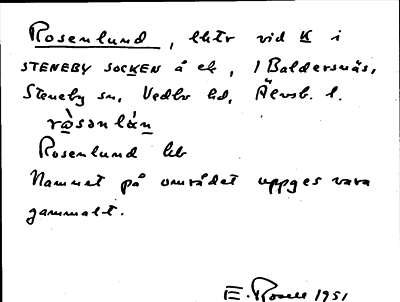 Rosenlund, lhtr vid K i
STENEBY SOCKEN å ek, 1 Baldersnäs,
Steneby sn, Vedbo hd, Älvsb. l.
rò̱sənlán̲
Rosenlund hb
Namnet på området uppges vara
gammalt.
E. Rosell 1951